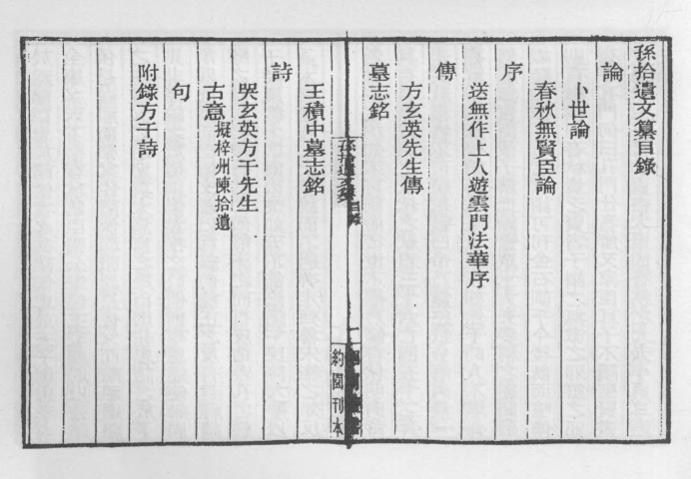 孫拾遺文纂目錄
論
卜世論
春秋無賢臣論
序
送無作上人遊雲門法華序
傳
方玄英先生傳
墓志銘
孫拾遺文纂 目錄
一
約園刊本
王積中墓志銘
詩
哭玄英方干先生
古意 擬梓州陳拾遺
句
附錄方干詩